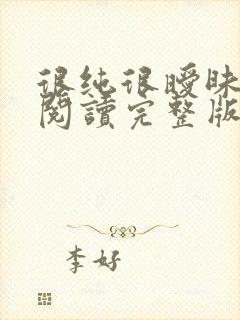 很纯很曖昧
閱讀完整版
李好